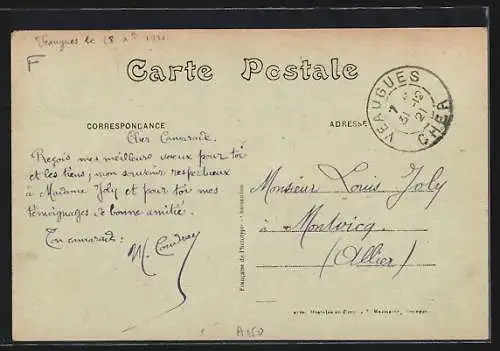 Veaugues le
F
Carte Postale
CORRESPONDANCE
ADRESSE
VEAUGUES
CHER
7
31-12
21
Cher Camarade.
Reçois mes meilleurs voeux pour toi
et les tiens, mon souvenir respectueux
à Madame Joly et pour toi mes
témoignages de bonne amitié.
Ton camarade :
M.
Monsieur Louis Joly
à Montvicq
(Allier)
A150